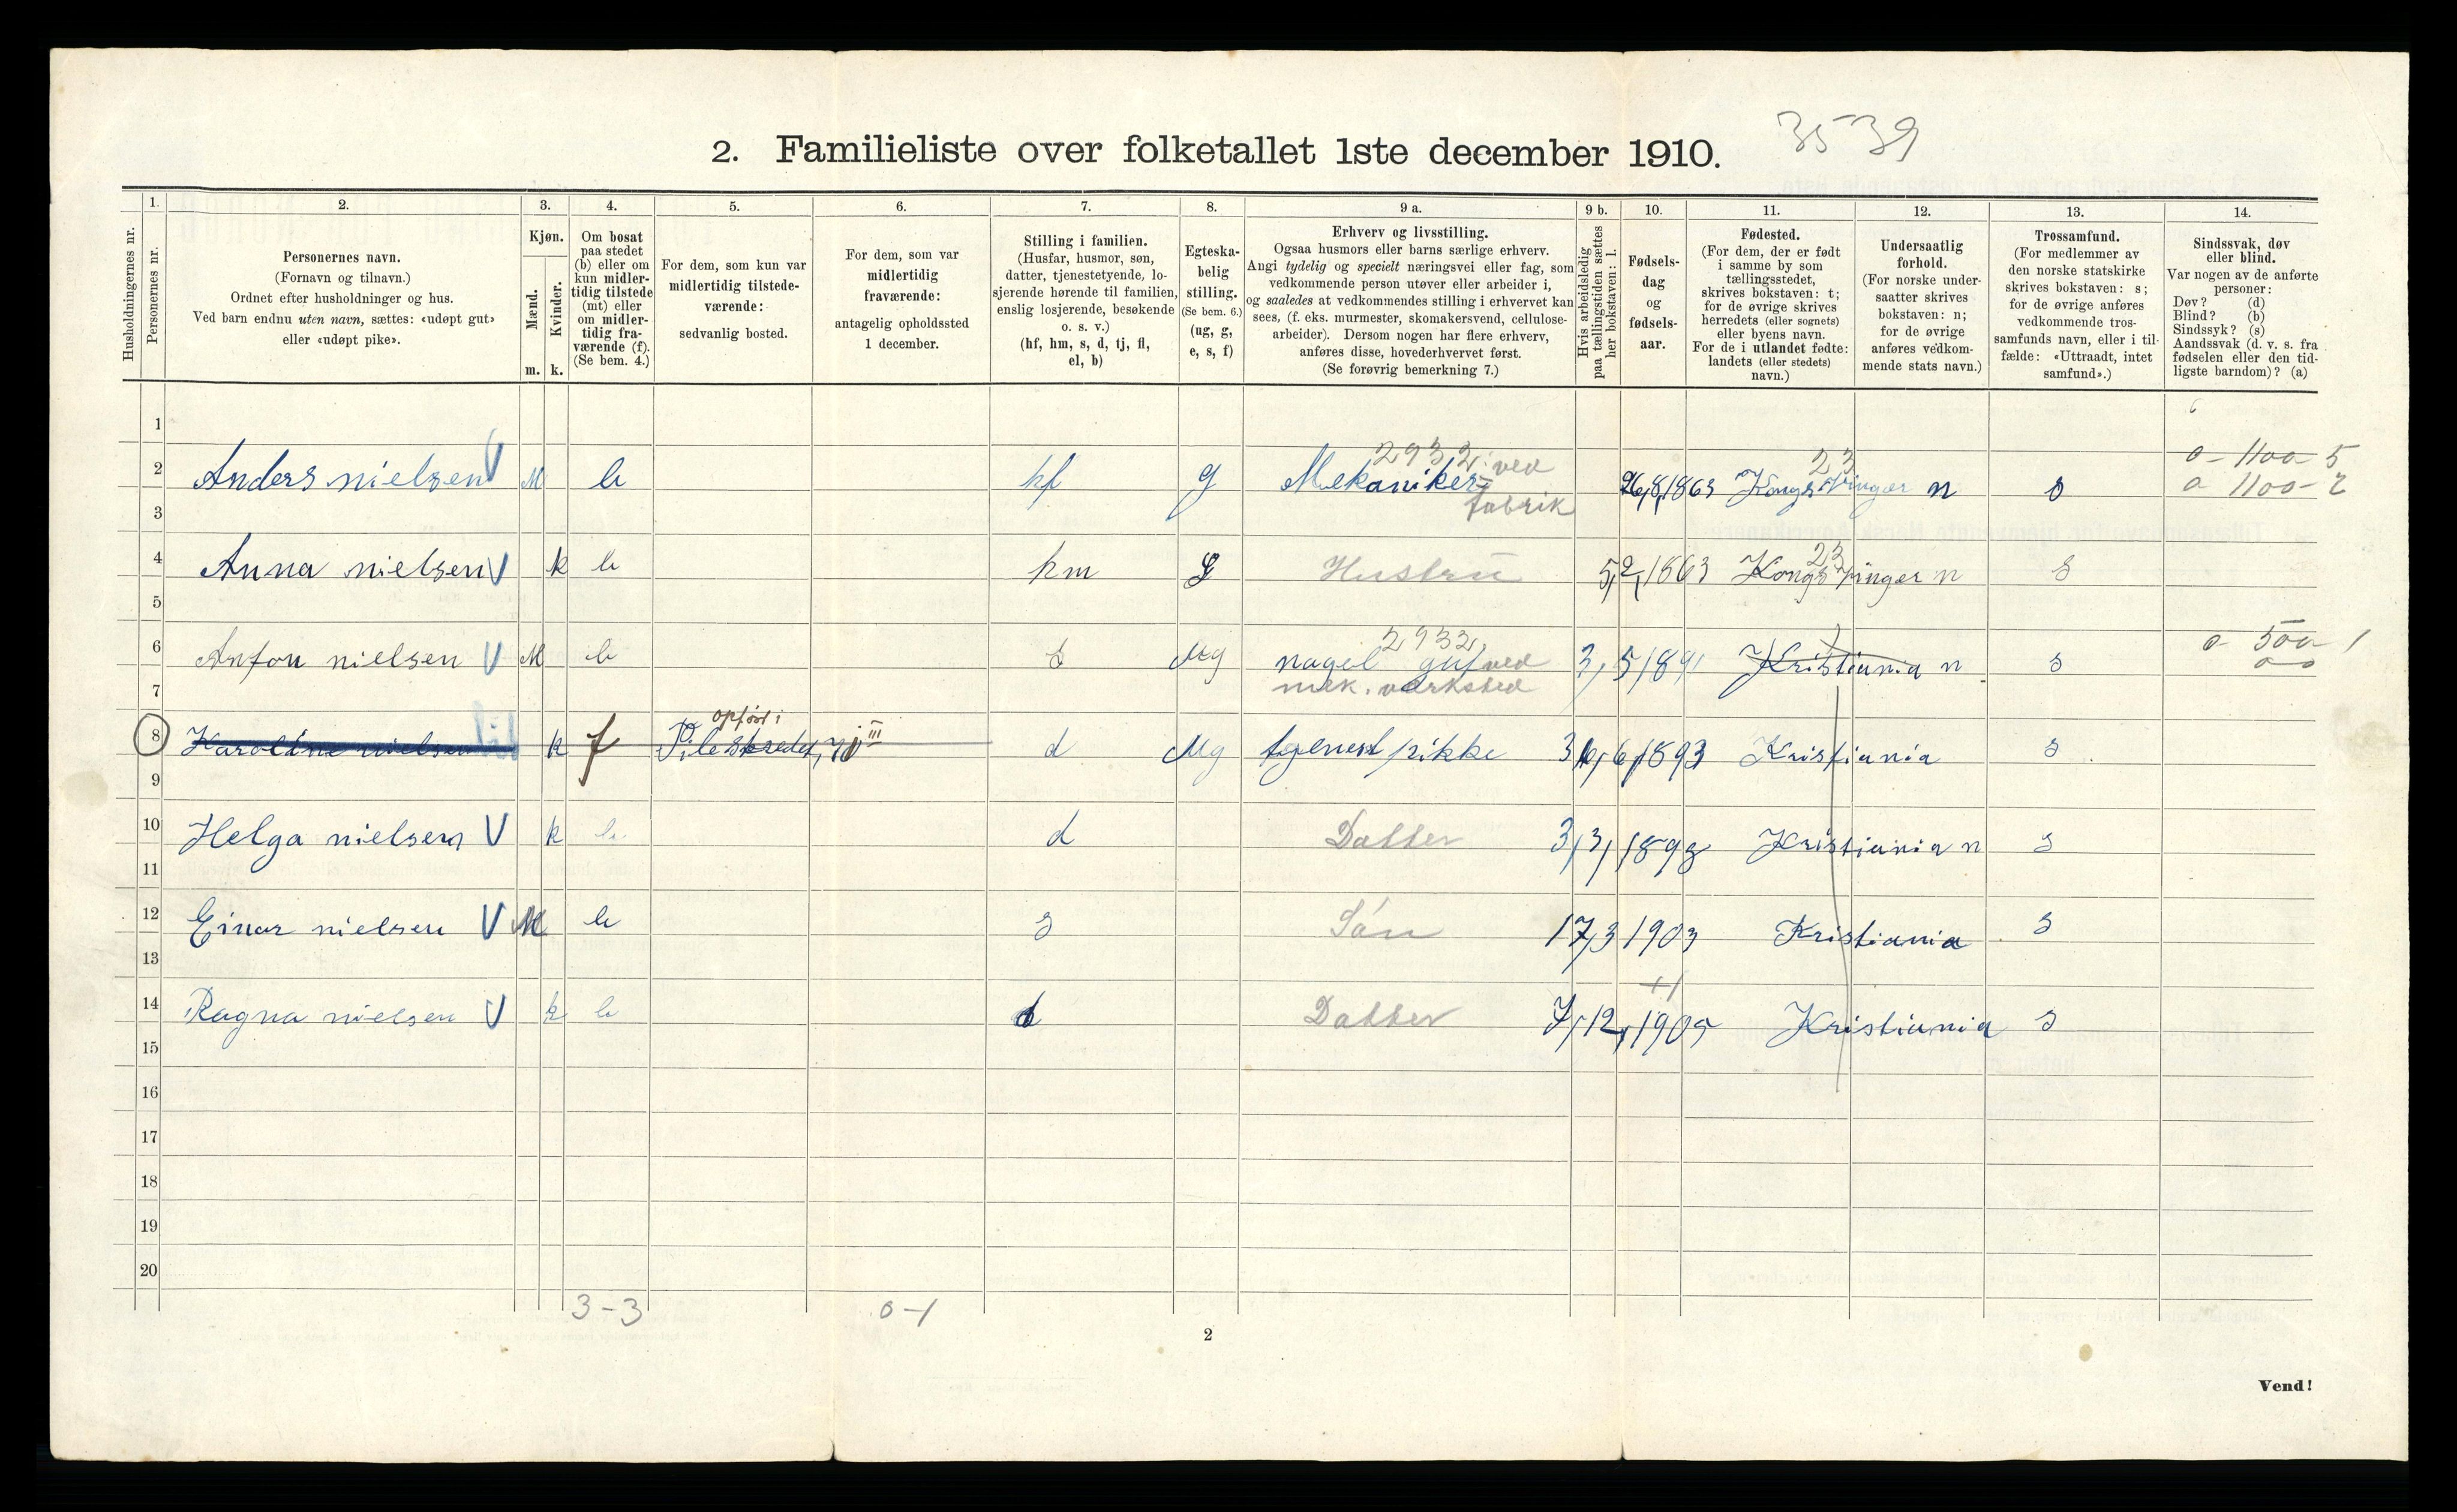 2. Familieliste over folketallet 1ste december 1910. 3539
Husholdningernes nr.
1.
Personernes nr.
2.
Personernes navn.
(Fornavn og tilnavn.)
Ordnet efter husholdninger og hus.
Ved barn endnu uten navn, sættes: «udøpt gut»
eller «udøpt pike».
3.
Kjøn.
Mænd.
m.
Kvinder.
k.
4.
Om bosat
paa stedet
(b) eller om
kun midler-
tidig tilstede
(mt) eller
om midler-
tidig fra-
værende (f).
(Se bem. 4.)
5.
For dem, som kun var
midlertidig tilstede-
værende:
sedvanlig bosted.
6.
For dem, som var
midlertidig
fraværende:
antagelig opholdssted
1 december.
7.
Stilling i familien.
(Husfar, husmor, søn,
datter, tjenestetyende, lo-
sjerende hørende til familien,
enslig losjerende, besøkende
o. s. v.)
(hf, hm, s, d, tj, fl,
el, b)
8.
Egteska-
belig
stilling.
(Se bem. 6.)
(ug, g,
e, s, f)
9 a.
Erhverv og livsstilling.
Ogsaa husmors eller barns særlige erhverv.
Angi tydelig og specielt næringsvei eller fag, som
vedkommende person utøver eller arbeider i,
og saaledes at vedkommendes stilling i erhvervet kan
sees, (f. eks. murmester, skomakersvend, cellulose-
arbeider). Dersom nogen har flere erhverv,
anføres disse, hovederhvervet først.
(Se forøvrig bemerkning 7.)
9 b.
Hvis arbeidsledig
paa tællingstiden sættes
her bokstaven: l.
10.
Fødsels-
dag
og
fødsels-
aar.
11.
Fødested.
(For dem, der er født
i samme by som
tællingsstedet,
skrives bokstaven: t;
for de øvrige skrives
herredets (eller sognets)
eller byens navn.
For de i utlandet fødte:
landets (eller stedets)
navn.)
12.
Undersaatlig
forhold.
(For norske under-
saatter skrives
bokstaven: n;
for de øvrige
anføres vedkom-
mende stats navn.)
13.
Trossamfund.
(For medlemmer av
den norske statskirke
skrives bokstaven: s;
for de øvrige anføres
vedkommende tros-
samfunds navn, eller i til-
fælde: «Uttraadt, intet
samfund».)
14.
Sindssvak, døv
eller blind.
Var nogen av de anførte
personer:
Døv? (d)
Blind? (b)
Sindssyk? (s)
Aandssvak (d. v. s. fra
fødselen eller den tid-
ligste barndom)? (a)
1
2932 23 0 - 1100 - 5
2 Anders nielsen V M b hf g Mekaniker ved 26,8,1863 Kongsvinger n s 0 1100 - 2
3 fabrik
23
4 Anna nielsen V k b hm g Hustru 5,2,1863 Kongsvinger n s
5
2932 0 - 500 - 1
6 Anton nielsen V M b s Ug nagel gut ved 3,5,1891 Kristiania n s 0 0
7 mek. værksted
opført i
8 Karoline nielsen k f Pilestredet, 70 III d Ug tjenestpikke 6,1893 Kristiania s
9
10 Helga nielsen V k b d Datter 3,3,1898 Kristiania n s
11
12 Einar nielsen V M b s Sön 17,3 1903 Kristiania s
13
+1
14 Ragna nielsen V k b d Datter 7,12,1905 Kristiania s
15
16
17
18
19
20
3 - 3 0 - 1
2
Vend!